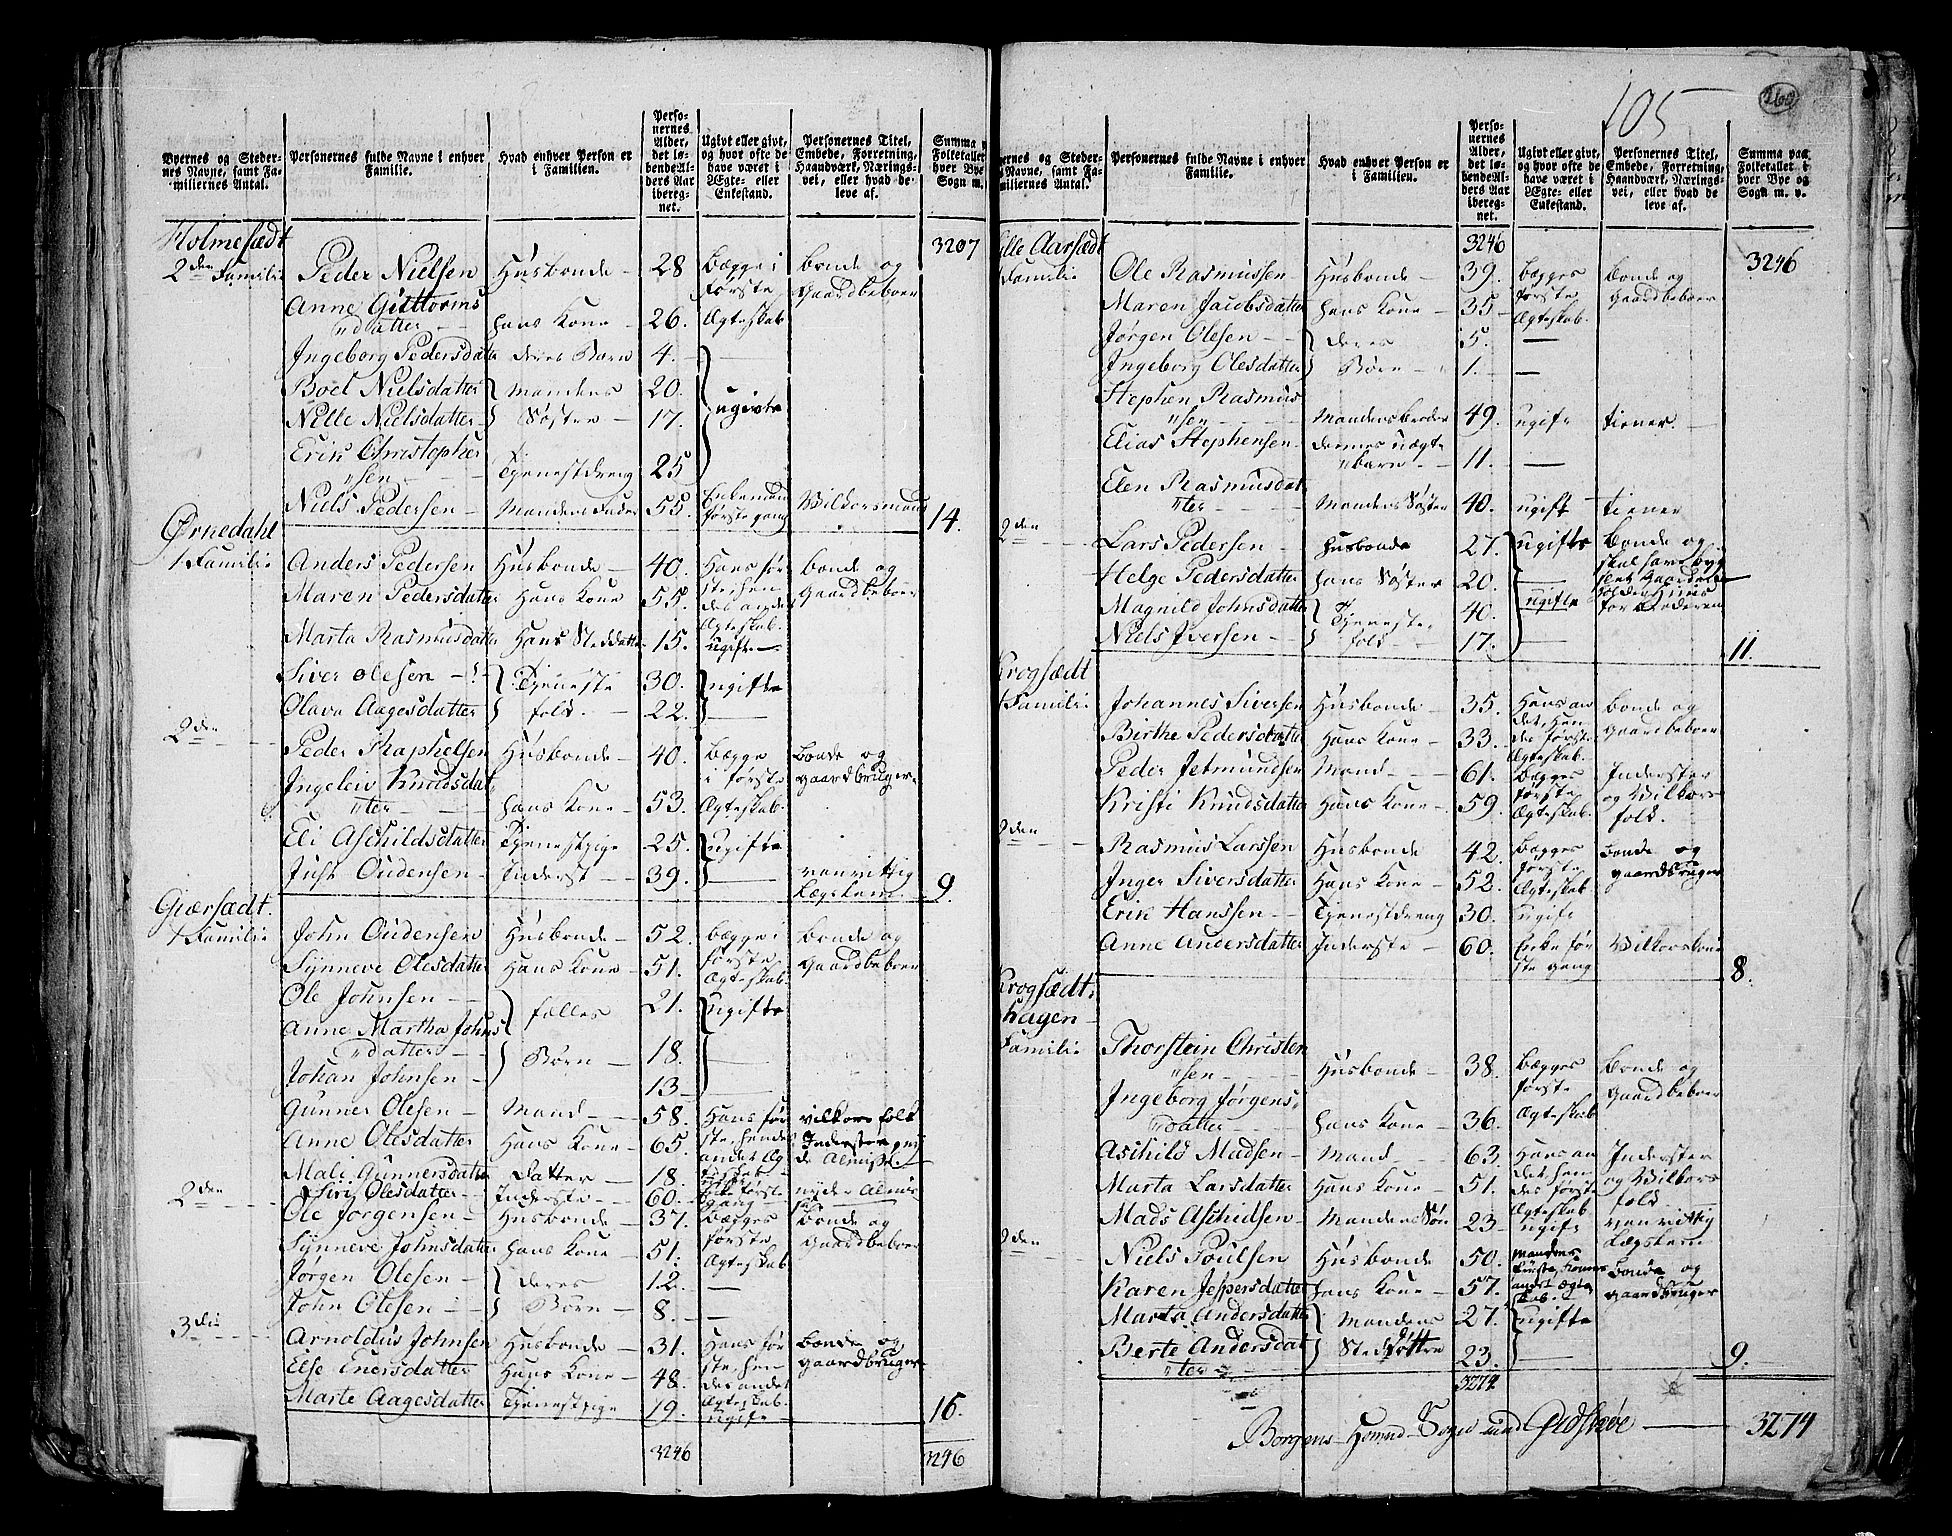 105
260
Byernes og Steder-
nes Navne, samt Fa-
miliernes Antal.
Personernes fulde Navne i enhver
Familie.
Hvad enhver Person er
i Familien.
Perso-
nernes
Alder,
det lø-
bende Al-
ders Aar
ibereg-
net.
Ugivt eller givt,
og hvor ofte de
have været i
Ægte- eller
Enkestand.
Personernes Titel,
Embede, Forretning,
Haandværk, Nærings-
vei, eller hvad de
leve af.
Summa
Folketallet
hver Bye
Sogn m.
3207
Holmesædt
2den Familie
Peder Nielsen Husbonde 28 Begge i Bonde og
første Gaardbeboer
Anne Guttorms
datter hans Kone 26. Ægteskab
Ingeborg Pedersdatter deres Barn 4. —
Boel Nielsdatter Mandens 20.
Nille Nielsdatter Søster 17. ugivte
Erik Christopher
sen Tjenestdreng 25
Niels Pedersen Mandens Fader 55. Enkemand
første gang Vilkorsmand 14.
Ørnedahl
1 Familie
Anders Pedersen Husbonde 40. Hans før Bonde og
Maren Pedersdatter Hans Kone 55. ste, hen Gaardbeboer
des andet
Ægteskab.
Marta Rasmusdatter Hans Steddatter 15. ugift —
Siver Olesen Tjeneste 30. ugifte
Olava Aagesdatter folk. 22. —
2den
Peder Raphelsen Husbonde 40. Begge Bonde og
i første gaardbruger
Ingeleiv Knudsdat
ter hans Kone 53. Ægteskab.
Eli Aschildsdatter Tjenestpige 25. ugifte
Just Oudensen Inderst 39. — vanvittig
Lægslem 9.
Giærsædt.
1 Familie
John Oudensen Husbonde 52. Begge i Bonde og
Synneve Olesdatter Hans Kone 51. første Gaardbeboer
Ægteskab.
Ole Johnsen fælles 21. ugifte
Anne Martha Johns
datter Børn 18.
Johan Johnsen 13 —
Gunner Olesen Mand 58. Hans før vilkors folk
Anne Olesdatter Hans Kone 65. ste, hendes Inderster
andet Æg
Mali Gunnersdatter Datter 18.
Siri Olesdatter Inderste 60. nyder Almis
2den
Ole Jørgensen Husbonde 37. Begges Bonde og
Synneve Johnsdatter hans Kone 51. første Gaardbeboer
Ægteskab
Jørgen Olesen deres 12. —
John Olesen Børn 8. —
3die
Arnoldus Johnsen Husbonde 31. Hans før Bonde og
Else Enersdatter Hans Kone 48. ste, hen gaardbruger
des andet
Marte Aagesdatter Tjenestpige 19. ugift 16.
3246 3246
ernes og Steder-
s Navne, samt Fa-
miliernes Antal.
Personernes fulde Navne i enhver
Familie.
Hvad enhver Person er
i Familien.
Perso-
nernes
Alder,
det lø-
bende Al-
ders Aar
ibereg-
net.
Ugivt eller givt,
og hvor ofte de
have været i
Ægte- eller
Enkestand.
Personernes Titel,
Embede, Forretning,
Haandværk, Nærings-
vei, eller hvad de
leve af.
Summa paa
Folketallet i
hver Bye og
Sogn m. v.
3246 3246
ille Aarsædt
Familie
Ole Rasmussen Husbonde 39. Begges Bonde og
Maren Jacobsdatter hans Kone 35 første gaardbeboer
Ægteskab.
Jørgen Olesen deres 5. —
Ingeborg Olesdatter Børn 1. —
Stephen Rasmus
sen Mandens broder 49. ugift tiener.
Elias Stephensen dennes uægte
barn 11. —
Elen Rasmusdat
ter Mandens Søster 40. ugift tiener
2den
Lars Pedersen Husbonde 27. ugifte Bonde og
Helge Pedersdatter hans Søster 20. —
Magnild Johnsdatter Tjeneste 40. ugifte
Niels Iversen folk 17. — 11.
Krogsædt
1 Familie
Johannes Siversen Husbonde 35. Hans an Bonde og
Birthe Pedersdatter Hans Kone 33. det, Hen gaardbeboer
des første
Ægteskab.
Peder Jetmundsen Mand 61. Begges Inderster
Kristi Knudsdatter Hans Kone 59. første og Vilkors
Ægteskab. folk.
2den
Rasmus Larssen Husbonde 42. Begges Bonde og
Inger Siversdatter Hans Kone 52. første gaardbruger
Ægteskab
Erik Hanssen Tjenestdreng 30. ugift
Anne Andersdatter Inderste 60. Enke før Vilkorskone
ste gang 8.
Krogsædt.
hagen
Familie
Thorstein Christen
sen Husbonde 38. Begges Bonde og
første Gaardbeboer
Ingeborg Jørgens
datter hans Kone 36. Ægteskab
Aschild Madsen Mand 63. Hans an Inderster
Marta Larsdatter Hans Kone 51. det hen og Vilkors
des første folk
Ægteskab
Mads Aschildsen Mandens Søn 23 ugift vanvittig
Lægslem
2den
Niels Poulsen Husbonde 50. Mandens
Karen Jespersdatter hans Kone 57. første, Konens Bonde og
andet Ægte gaardbruger
skab.
Marta Andersdatter Mandens 27. ugifte
Berte Andersdat
ter Steddøttre 23. — 9.
3274
Borgens Sogn 3274